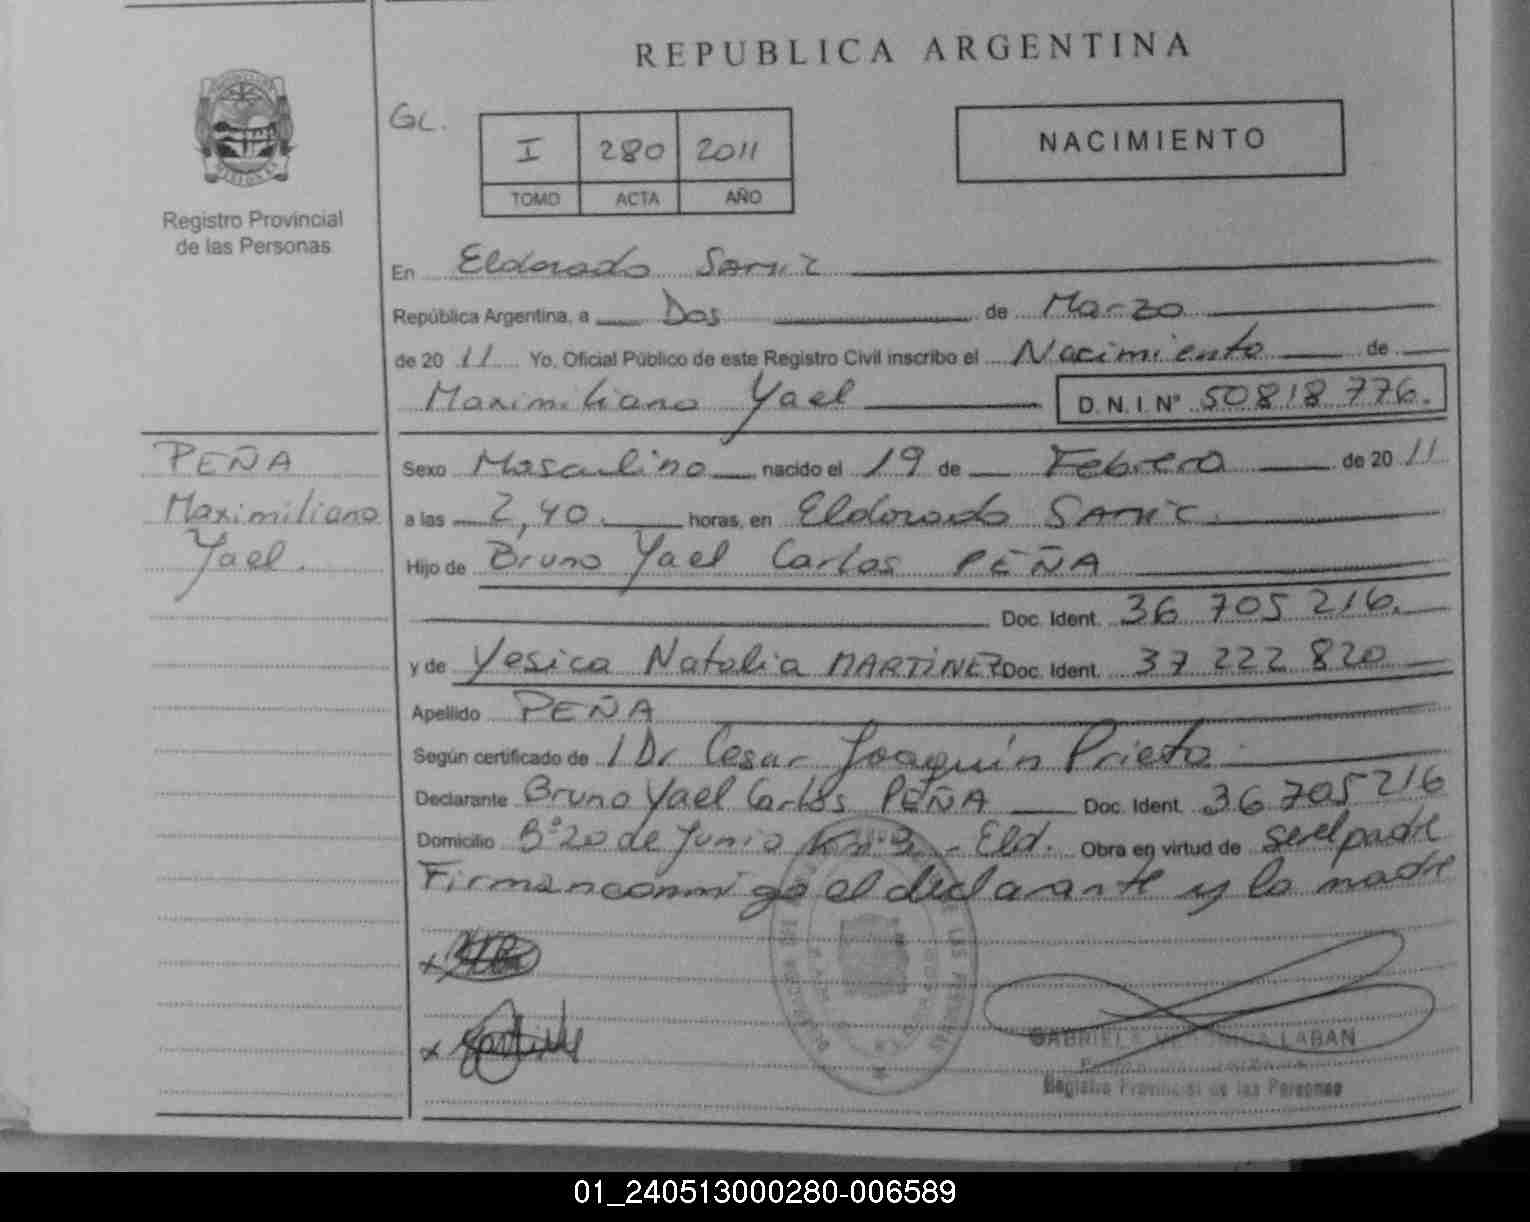 REPUBLICA ARGENTINA
GL.
I 280 2011
TOMO ACTA AÑO
NACIMIENTO
MISIONES
Registro Provincial
de las Personas
En Eldorado Samic
República Argentina, a Dos de Marzo
de 2011 Yo, Oficial Público de este Registro Civil inscribo el Nacimiento de
Maximiliano Yael D.N.I. Nº 50818776.
PEÑA
Maximiliano
Yael.
Sexo Masculino nacido el 19 de Febrero de 2011
a las 2,40. horas, en Eldorado SAMIC.
Hijo de Bruno Yael Carlos PEÑA
Doc. Ident. 36 705 216.
y de Yesica Natalia MARTINEZ Doc. Ident. 37 222 820
Apellido PEÑA
Según certificado de / Dr Cesar Joaquín Prieto
Declarante Bruno Yael Carlos PEÑA Doc. Ident. 36 705 216
Domicilio Bº 20 de Junio Km 9 - Eld. Obra en virtud de ser el padre
Firman conmigo el declarante y la madre
GABRIELA LABAN
Registro Provincial de las Personas
01_240513000280-006589